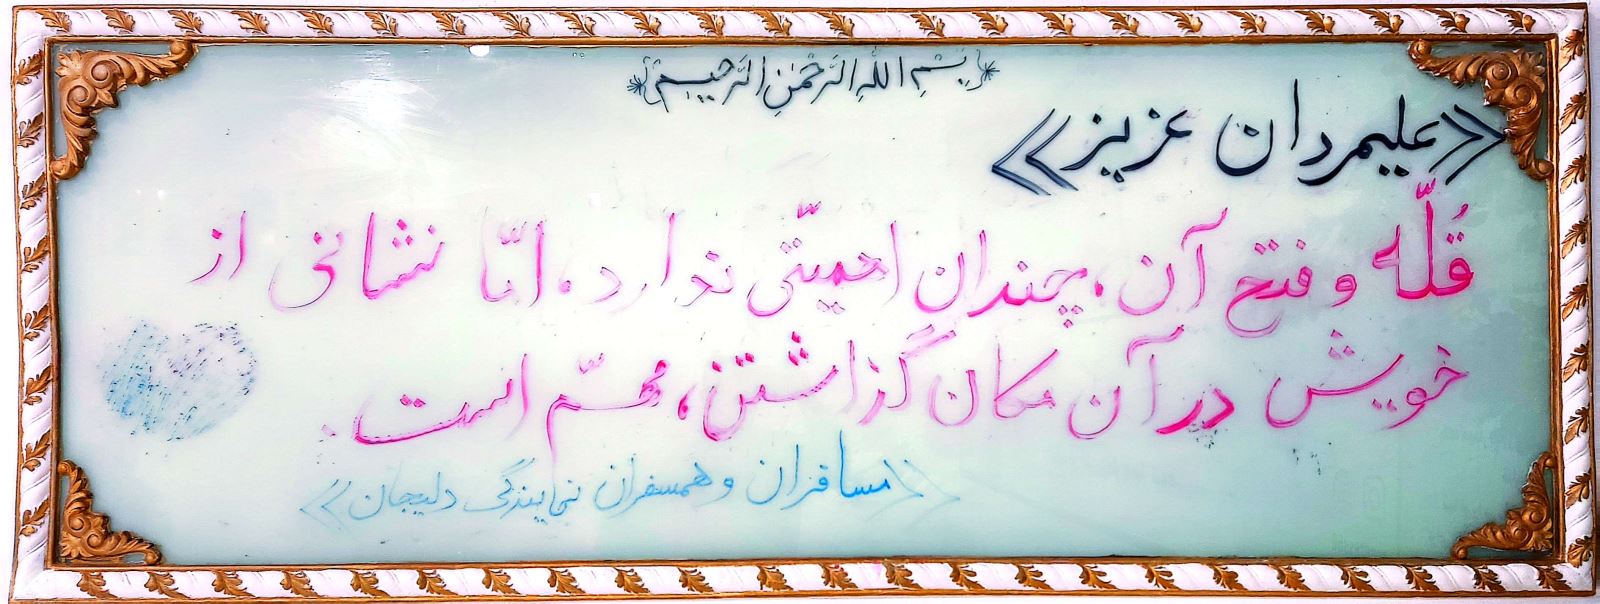 ﴿بِسْمِ اللّٰهِ الرَّحْمٰنِ الرَّحیمِ﴾
«علیمردان عزیز»
قُلّه و فتح آن، چندان اهمیّتی ندارد، امّا نشانی از
خویش در آن مکان گذاشتن، مهمّ است.
«مسافران و همسفران نمایندگی دلیجان»